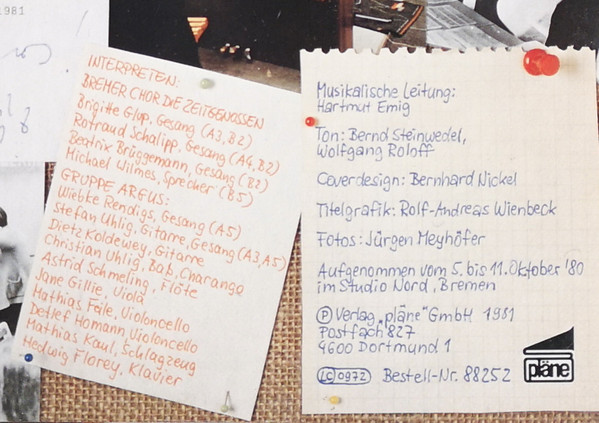 1981
INTERPRETEN:
BREMER CHOR DIE ZEITGENOSSEN
Brigitte Glup, Gesang (A3, B2)
Rotraud Schalipp, Gesang (A4, B2)
Beatrix Brüggemann, Gesang (B2)
Michael Wilmes, Sprecher (B5)
GRUPPE ARGUS:
Wiebke Rendigs, Gesang (A5)
Stefan Uhlig, Gitarre, Gesang (A3, A5)
Dietz Koldewey, Gitarre
Christian Uhlig, Bab, Charango
Astrid Schmeling, Flöte
Jane Gillie, Viola
Mathias Feile, Violoncello
Detlef Homann, Violoncello
Mathias Kaul, Schlagzeug
Hedwig Florey, Klavier
Musikalische Leitung:
Hartmut Emig
Ton: Bernd Steinwedel,
Wolfgang Roloff
Coverdesign: Bernhard Nickel
Titelgrafik: Rolf-Andreas Wienbeck
Fotos: Jürgen Meyhöfer
Aufgenommen vom 5. bis 11. Oktober '80
im Studio Nord, Bremen
Ⓟ Verlag "pläne" GmbH 1981
Postfach 827
4600 Dortmund 1
LC 0972 Bestell-Nr. 88252
pläne